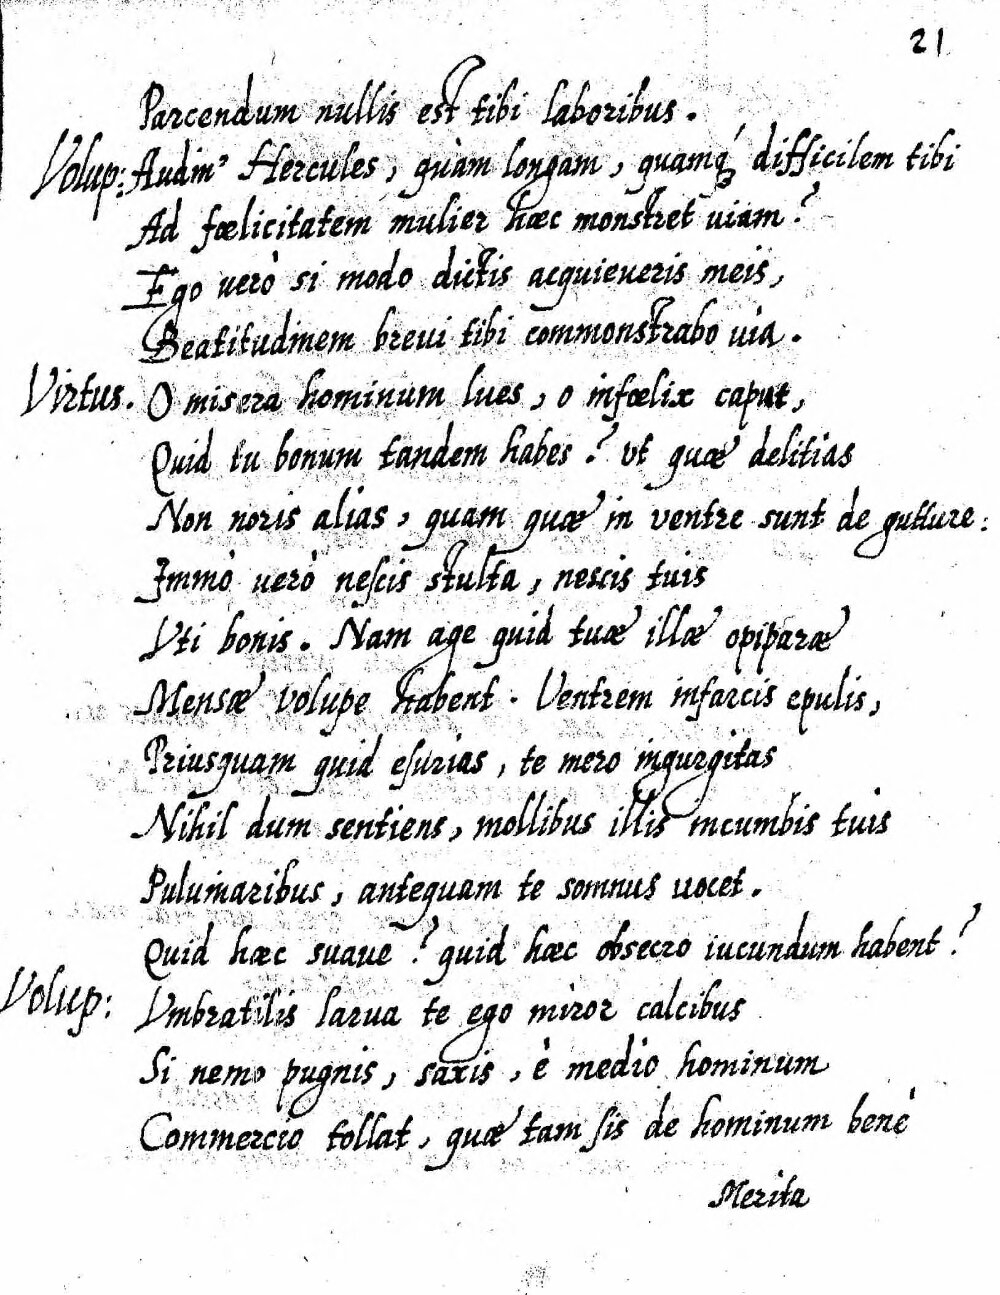 21
Parcendum nullis est tibi laboribus.
Volup: Audin' Hercules, quàm longam, quamq́ difficilem tibi
Ad fœlicitatem mulier hæc monstret uiam?
Ego uerò si modo dictis acquieueris meis,
Beatitudinem breui tibi commonstrabo uia.
Virtus. O misera hominum lues, o infœlix caput,
Quid tu bonum tandem habes? ut quæ delitias
Non noris alias, quam quæ in ventre sunt de gutture:
Immò uerò nescis stulta, nescis tuis
Vti bonis. Nam age quid tuæ illæ opiparæ
Mensæ volupe habent. Ventrem infarcis epulis,
Priusquam quid esurias, te mero ingurgitas
Nihil dum sentiens, mollibus illis incumbis tuis
Puluinaribus, antequam te somnus uocet.
Quid hæc suaue? quid hæc obsecro iucundum habent?
Volup: Vmbratilis larua te ego miror calcibus
Si nemo pugnis, saxis, è medio hominum
Commercio tollat, quæ tam sis de hominum benè
Merita